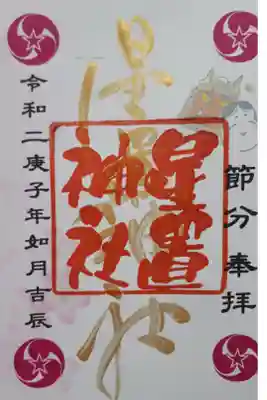 節分 奉拝
星置
神社
星置神社
令和二庚子年如月吉辰